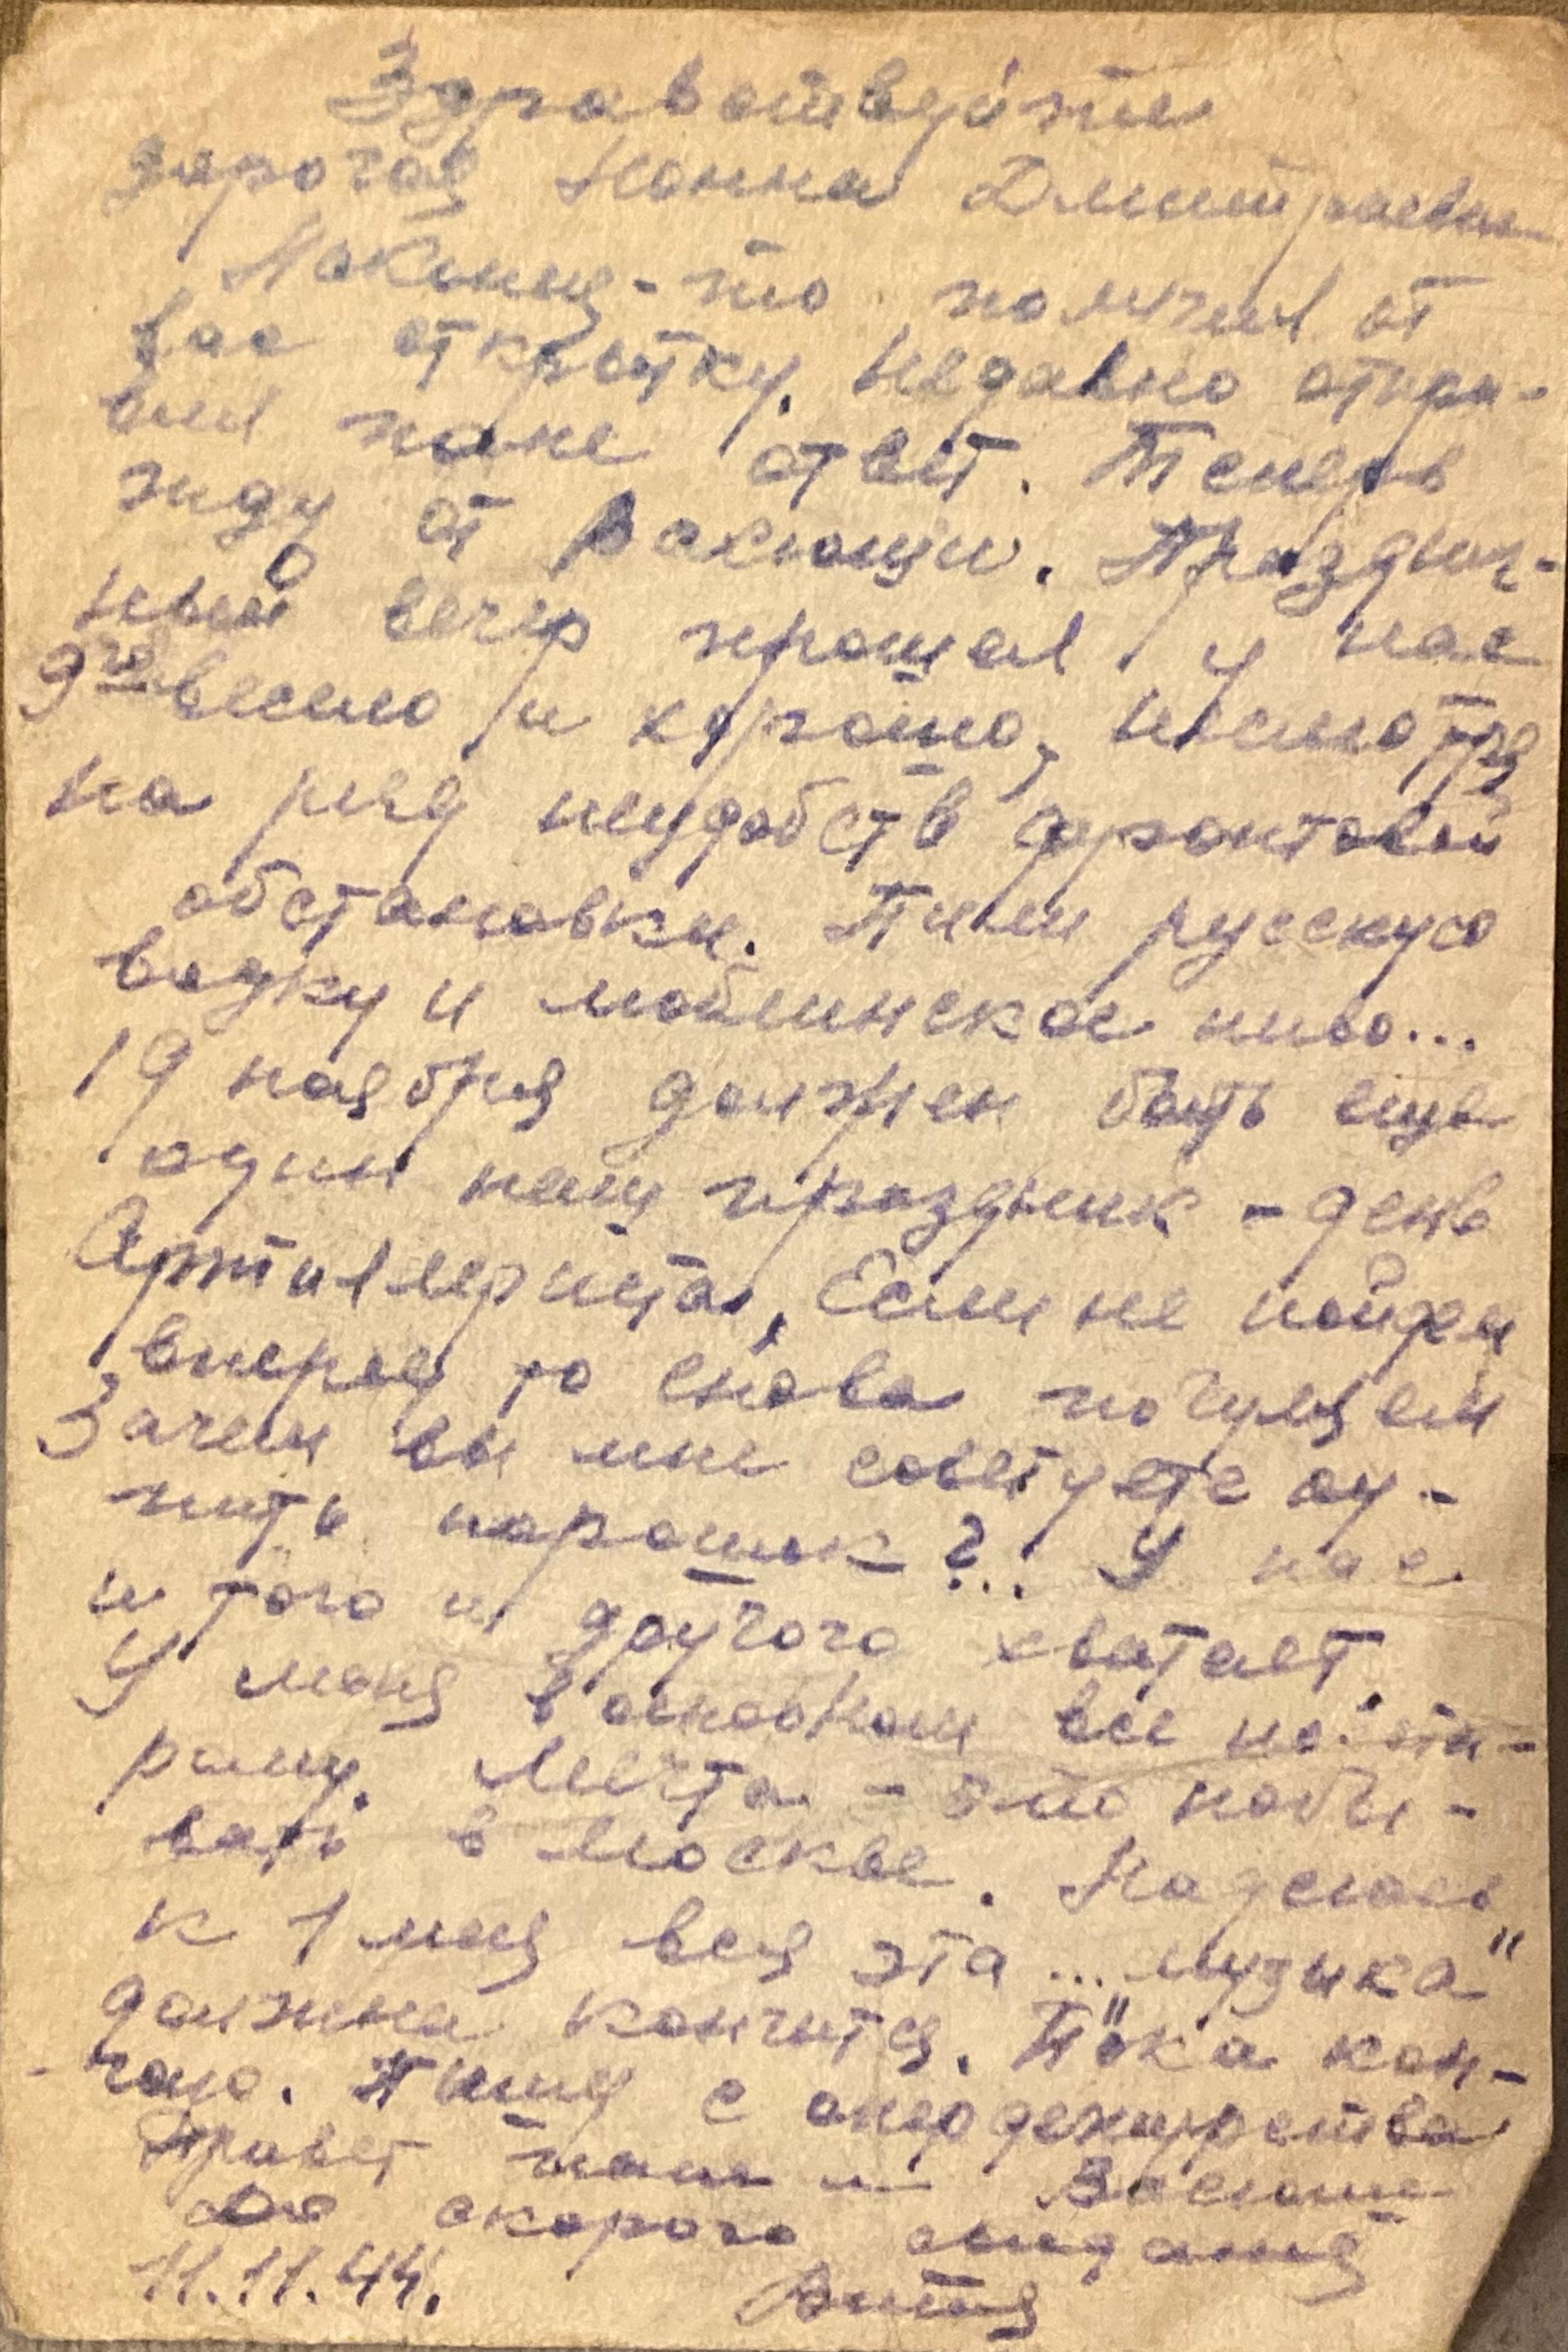 Здравствуйте
дорогая Нонна Дмитриевна
Наконец-то получил от
вас открытку. Недавно отпра-
вил папе ответ. Теперь
жду от Васюши. Празднич-
ный вечер прошел у нас
9го весело и хорошо, несмотря
на ряд неудобств фронтовой
обстановки. Пили русскую
водку и люблинское пиво...
19 ноября должен быть еще
один наш праздник - день
Артиллериста, Если не пойдем
вперед то снова погуляем
Зачем вы мне советуете
порошок?.. У нас
и того и другого хватает.
У меня в основном все по ста-
рому. Мечта - это побы-
вать в Москве. Надеюсь
к 1 мая вся эта ... музыка"
должна кончится. Пока кон-
чаю. Пишу с опердежурства
Привет папе и Васюше
До скорого свидания
11.11.44. Витя